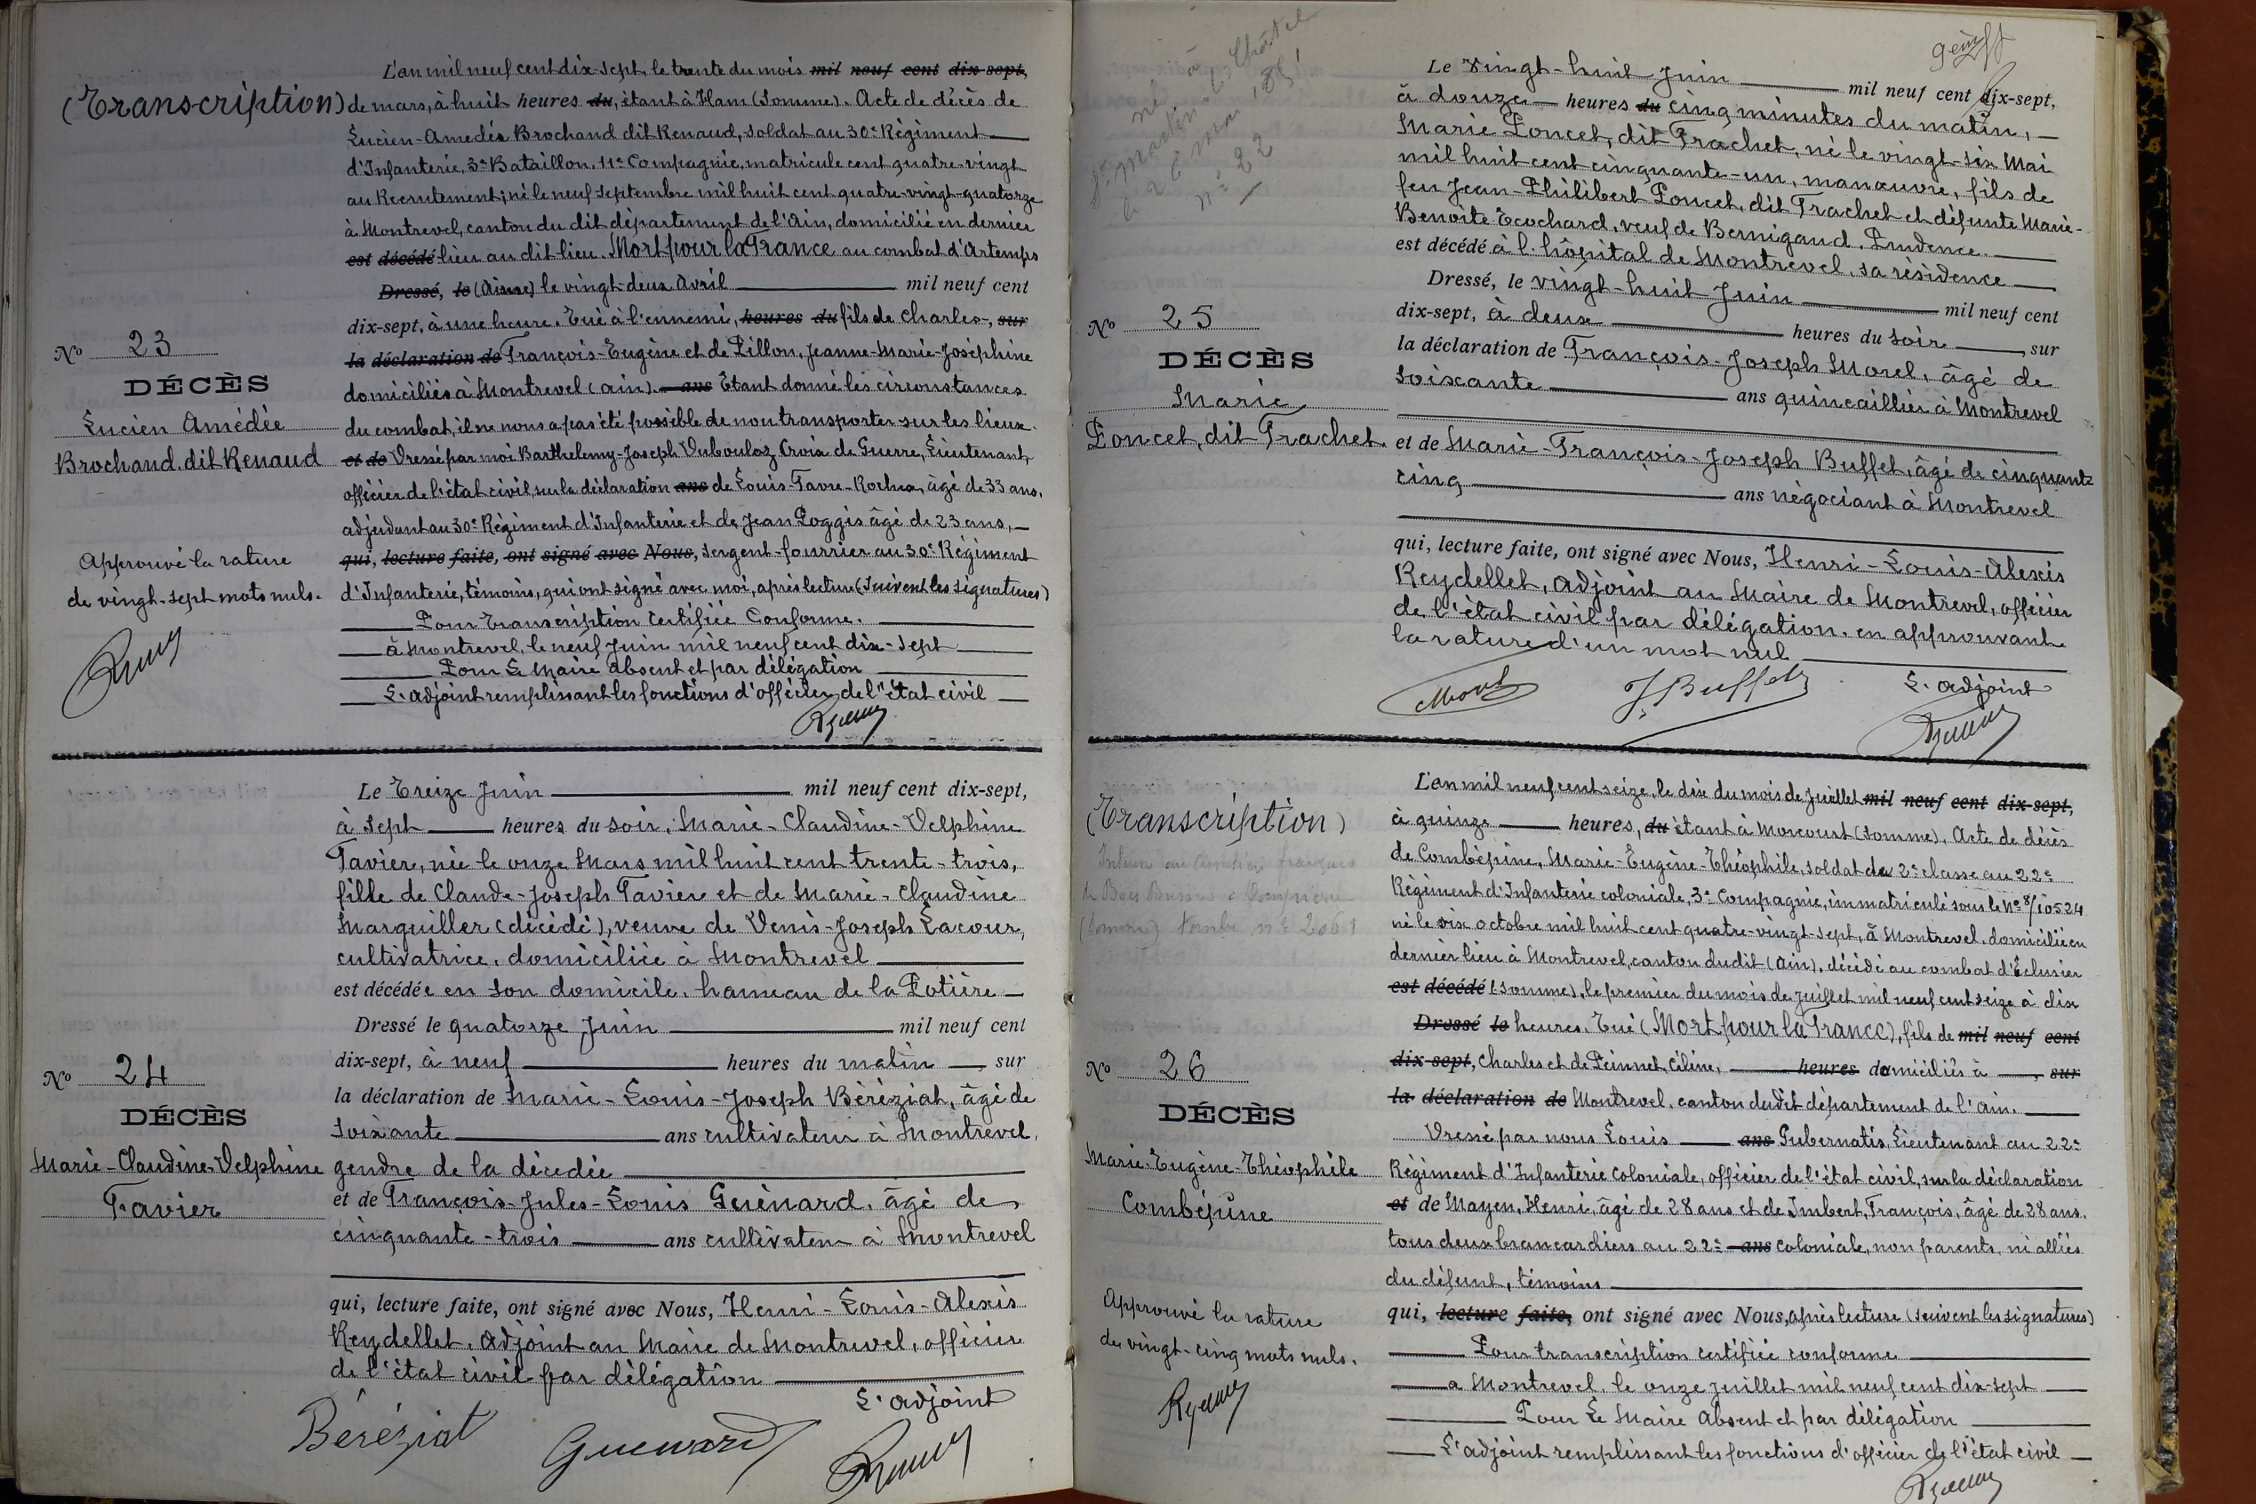 L'an mil neuf cent dix-sept, le trente du mois mil neuf cent dix-sept,
(Transcription) de mars, à huit heures du, étant à Ham (Somme). Acte de décès de
Lucien-Amédée Brochand dit Renaud, soldat au 30e Régiment
d'Infanterie, 3e Bataillon, 11e Compagnie, matricule cent quatre-vingt
au Recrutement; né le neuf septembre mil huit cent quatre-vingt-quatorze
à Montrevel, canton du dit département de l'Ain, domicilié en dernier
est décédé lieu au dit lieu. Mort pour la France au combat d'Artemps
Dressé, le (Aisne) le vingt-deux Avril mil neuf cent
dix-sept, à une heure. Tué à l'ennemi, heures du fils de Charles-, sur
la déclaration de François-Eugène et de Pillon, Jeanne-Marie-Joséphine
domiciliés à Montrevel (Ain). ans Etant donné les circonstances
du combat, il ne nous a pas été possible de nou transporter sur les lieux.
et de Dressé par moi Barthelemy-Joseph Dubouloz Croix de Guerre, Lieutenant,
officier de l'état civil, sur la déclaration ans de Louis-Favre- âgé de 33 ans,
adjudant au 30e Régiment d'Infanterie et de Jean Poggis âgé de 23 ans,
qui, lecture faite, ont signé avec Nous, sergent-fourrier au 30e Régiment
d'Infanterie, témoins, qui ont signé avec moi, après lecture (Suivent les signatures)
Pour Transcription Certifiée Conforme.
à Montrevel, le neuf Juin mil neuf cent dix-sept
Pour Le Maire Absent et par délégation
L'adjoint remplissant les fonctions d'officier de l'état civil
No 23
DÉCÈS
Lucien Amédée
Brochand, dit Renaud
Approuvé la rature
de vingt-sept mots nuls.
Le Treize Juin mil neuf cent dix-sept,
à sept heures du soir, Marie-Claudine-Delphine
Favier, née le onze Mars mil huit cent trente-trois,
fille de Claude-Joseph Favier et de Marie-Claudine
Marguiller (décédé), veuve de Denis-Joseph Lacour,
cultivatrice, domiciliée à Montrevel
est décédée en son domicile, hameau de la Potière
Dressé le quatorze Juin mil neuf cent
dix-sept, à neuf heures du matin, sur
la déclaration de Marie-Louis-Joseph Béréziat, âgé de
soixante ans cultivateur à Montrevel,
gendre de la décedée
et de François-Jules-Louis Guénard, âgé de
cinquante-trois ans cultivateur à Montrevel
qui, lecture faite, ont signé avec Nous, Henri-Louis-Alexis
Reydellet, Adjoint au Maire de Montrevel, officier
de l'état civil par délégation
L'adjoint
Béréziat
Guenard
No 24
DÉCÈS
Marie-Claudine-Delphine
Favier
né à
St Martin le Châtel
le 26 mai 1851
no 22
Le vingt-huit Juin mil neuf cent dix-sept,
à douze heures du cinq minutes du matin,
Marie Poncet, dit Trachet, né le vingt-six Mai
mil huit cent cinquante-un, manœuvre, fils de
feu Jean-Philibert Poncet, dit Trachet et défunte Marie-
Benoîte Ecochard, veuf de Bernigaud, Prudence.
est décédé à l'hôpital de Montrevel, sa résidence
Dressé, le vingt-huit Juin mil neuf cent
dix-sept, à deux heures du soir, sur
la déclaration de François-Joseph Morel, âgé de
soixante ans quincaillier à Montrevel
et de Marie-François-Joseph Buffet, âgé de cinquante
cinq ans négociant à Montrevel
qui, lecture faite, ont signé avec Nous, Henri-Louis-Alexis
Reydellet, Adjoint au Maire de Montrevel, officier
de l'état civil par délégation, en approuvant
la rature d'un mot nul
L'adjoint
Morel
J. Buffet
No 25
DÉCÈS
Marie
Poncet, dit Trachet.
L'an mil neuf cent seize, le dix du mois de Juillet mil neuf cent dix-sept,
(Transcription)
à quinze heures, du étant à Morcourt (Somme). Acte de décès
de Combépine, Marie-Eugène-Théophile, soldat de 2e classe au 22e
Régiment d'Infanterie coloniale, 3e Compagnie, immatriculé sous le No 8/10524
né le six octobre mil huit cent quatre-vingt-sept, à Montrevel, domicilié en
dernier lieu à Montrevel, canton dudit (Ain), décédé au combat d'Eclusier
est décédé (Somme), le premier du mois de juillet mil neuf cent seize à dix
Dressé le heures. Tué (Mort pour la France), fils de mil neuf cent
dix-sept, Charles et de Peinnet, Céline, heures domiciliés à, sur
la déclaration de Montrevel, canton dudit département de l'Ain.
Dressé par nous Louis ans Gubernatis, Lieutenant au 22e
Régiment d'Infanterie Coloniale, officier de l'état civil, sur la déclaration
et de Mayen, Henri, âgé de 28 ans et de Imbert, François, âgé de 28 ans.
tous deux brancardiers au 22e ans coloniale, non parents, ni alliés
du défunt, témoins
qui, lecture faite, ont signé avec Nous, après lecture (suivent les signatures)
Pour transcription certifiée conforme
a Montrevel, le onze juillet mil neuf cent dix-sept
Pour Le Maire Absent et par délégation
L'adjoint remplissant les fonctions d'officier de l'état civil
Inhumé au cimetière français
No 26
DÉCÈS
Marie-Eugène-Théophile
Combépine
Approuvé la rature
de vingt-cinq mots nuls.